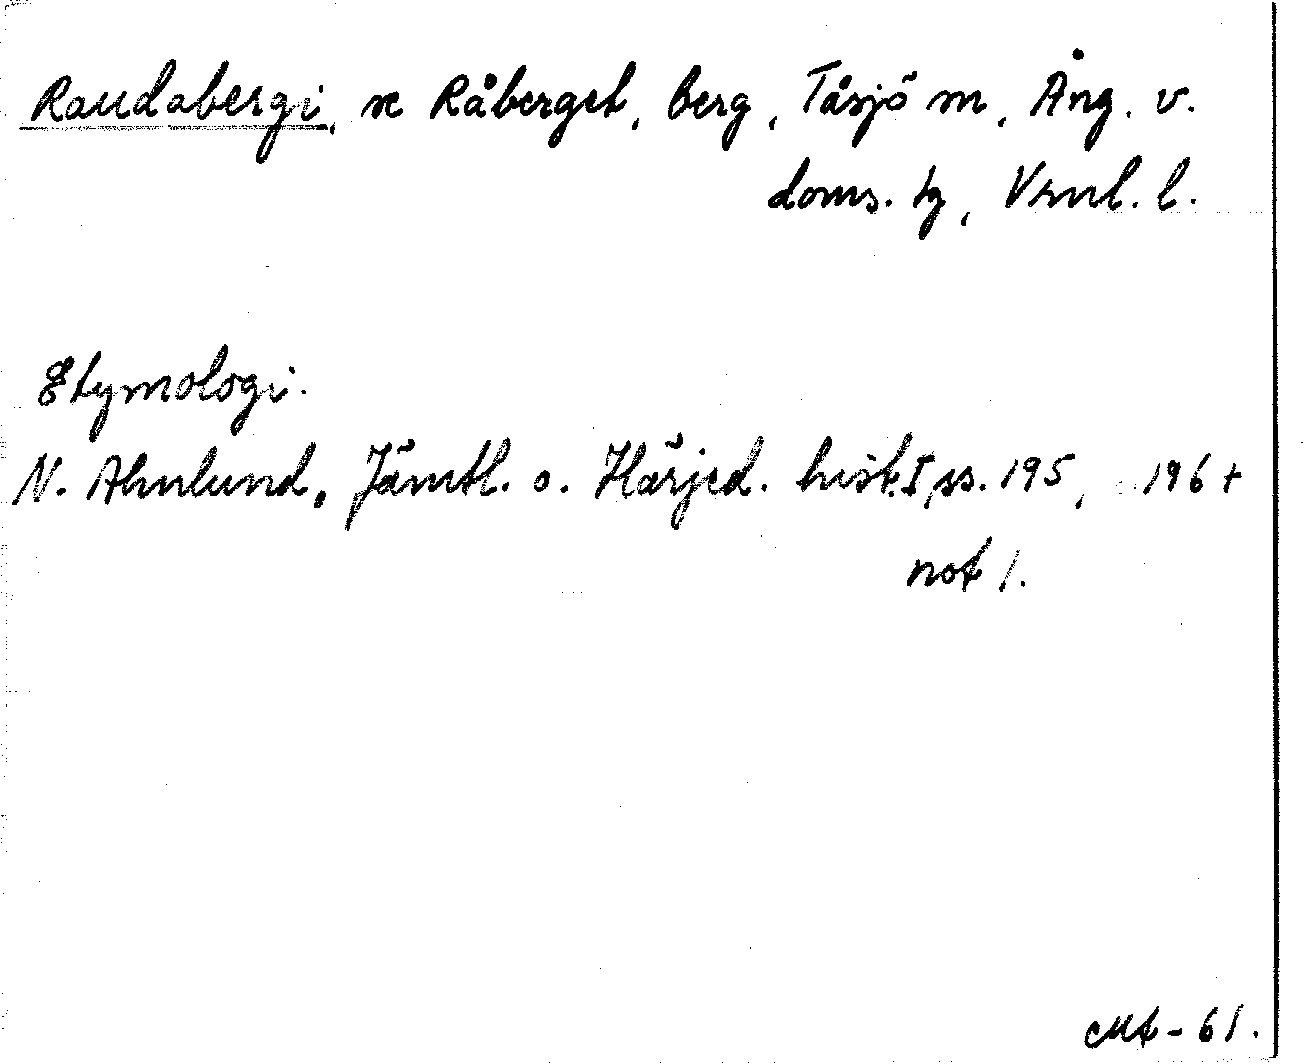 Raudabergi, se Råberget, berg, Tåsjö sn, Ång. v.
doms. tg, Vrnl. l.
Etymologi.
N. Ahnlund, Jämtl. o. Härjed. hist. I, ss. 195, 196 +
not 1.
-61.